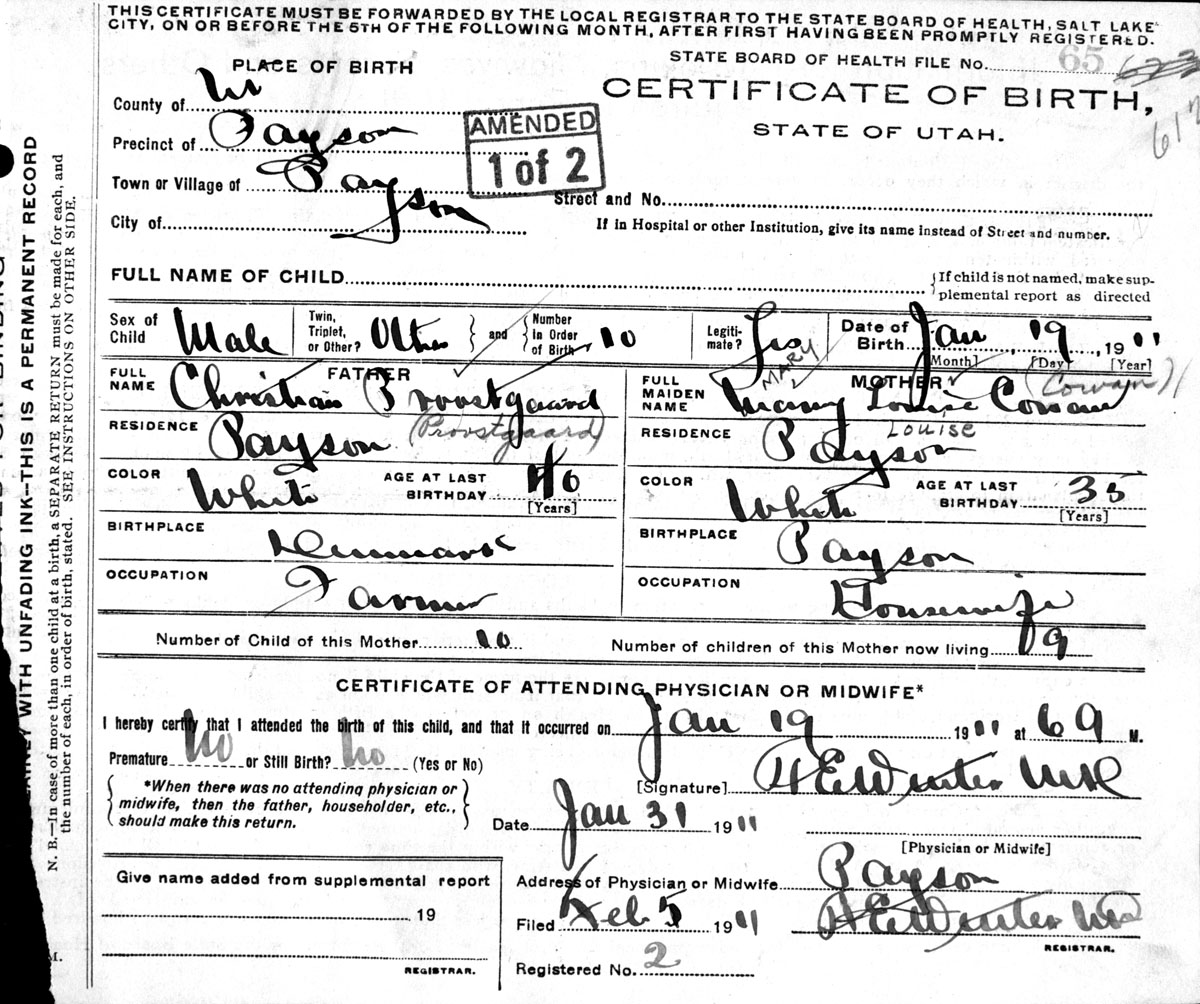 THIS CERTIFICATE MUST BE FORWARDED BY THE LOCAL REGISTRAR TO THE STATE BOARD OF HEALTH, SALT LAKE
CITY, ON OR BEFORE THE 5TH OF THE FOLLOWING MONTH, AFTER FIRST HAVING BEEN PROMPTLY REGISTERED.
STATE BOARD OF HEALTH FILE NO. 65
PLACE OF BIRTH
CERTIFICATE OF BIRTH,
STATE OF UTAH.
County of
Precinct of Payson
Town or Village of Payson
City of
AMENDED
1 of 2
Street and No.
If in Hospital or other Institution, give its name instead of Street and number.
FULL NAME OF CHILD
If child is not named, make sup-
plemental report as directed
Sex of Child Male Twin, Triplet, or Other? Other and Number in Order of Birth 10 Legiti-mate? Yes Date of Birth Jan 19, 1911
[Month] [Day] [Year]
FATHER
FULL NAME Christian Provstgaard
(Provstgaard)
RESIDENCE Payson
COLOR White AGE AT LAST BIRTHDAY 46
[Years]
BIRTHPLACE Denmark
OCCUPATION Farmer
MOTHER
MARY (Cowan)
FULL MAIDEN NAME Mary Louise Cowan
LOUISE
RESIDENCE Payson
COLOR White AGE AT LAST BIRTHDAY 35
[Years]
BIRTHPLACE Payson
OCCUPATION Housewife
Number of Child of this Mother 10 Number of children of this Mother now living 9
CERTIFICATE OF ATTENDING PHYSICIAN OR MIDWIFE*
I hereby certify that I attended the birth of this child, and that it occurred on Jan 19 1911 at 6 a M.
Premature No or Still Birth? No (Yes or No)
*When there was no attending physician or
midwife, then the father, householder, etc.,
should make this return.
[Signature] H E Winter MD
Date Jan 31 1911
[Physician or Midwife]
Give name added from supplemental report
19
REGISTRAR.
Address of Physician or Midwife Payson
Filed Feb 5 1911 H E Winter MD
REGISTRAR.
Registered No. 2
WITH UNFADING INK--THIS IS A PERMANENT RECORD
N. B.—In case of more than one child at a birth, a SEPARATE RETURN must be made for each, and
the number of each, in order of birth, stated. SEE INSTRUCTIONS ON OTHER SIDE.